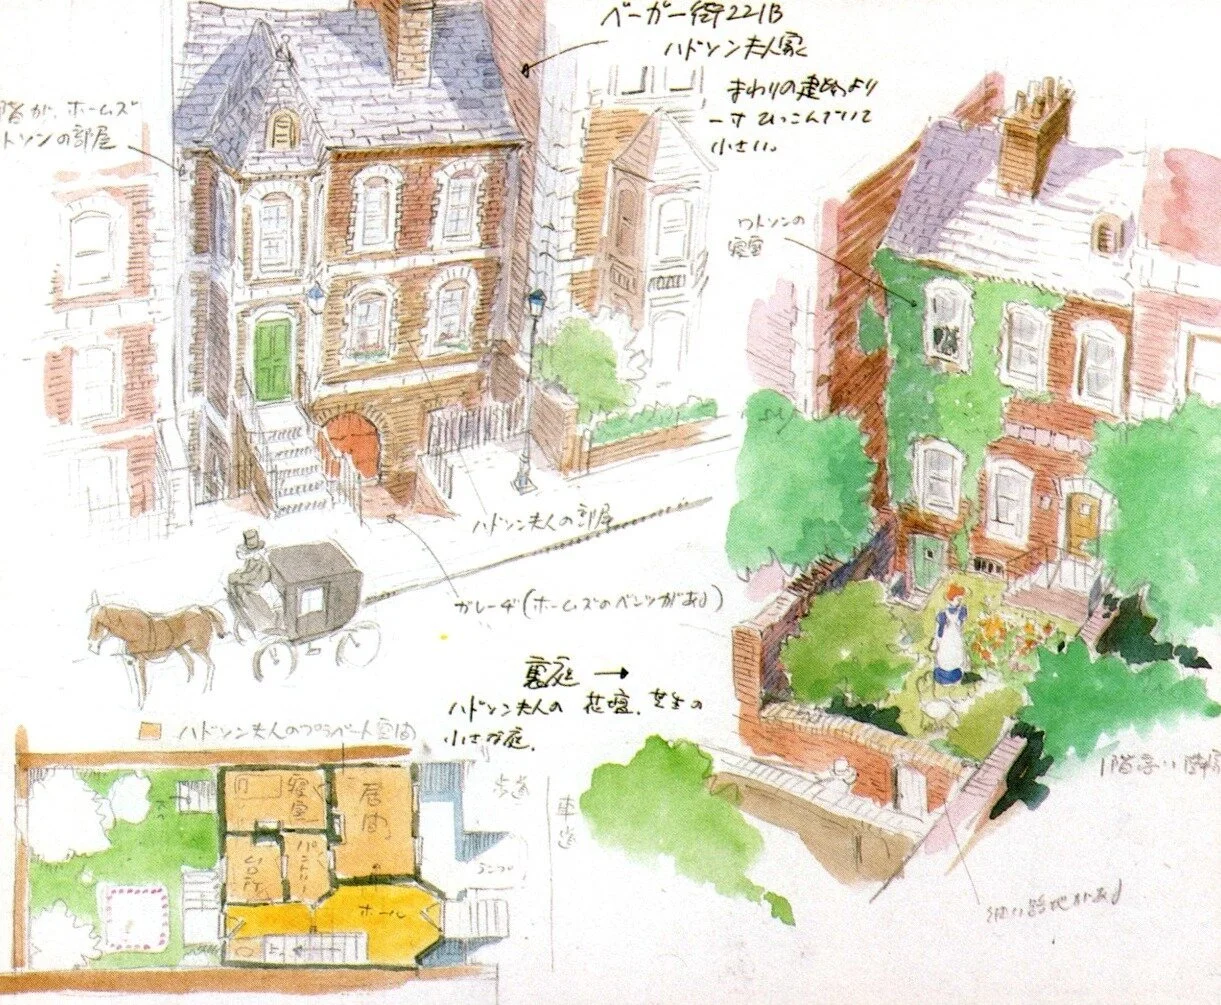 ベーカー街221B
ハドソン夫人家
まわりの建物より
一寸ひっこんでいて
小さい。
階が、ホームズ
トソンの部屋
ワトソンの
寝室
ハドソン夫人の部屋
ガレーヂ(ホームズのベンツがある)
裏庭 →
ハドソン夫人の 花壇、芝生の
小さな庭。
ハドソン夫人のプライベート空間
寝室
居間
台所
パントリー
ホール
歩道
車道
細い路地がある